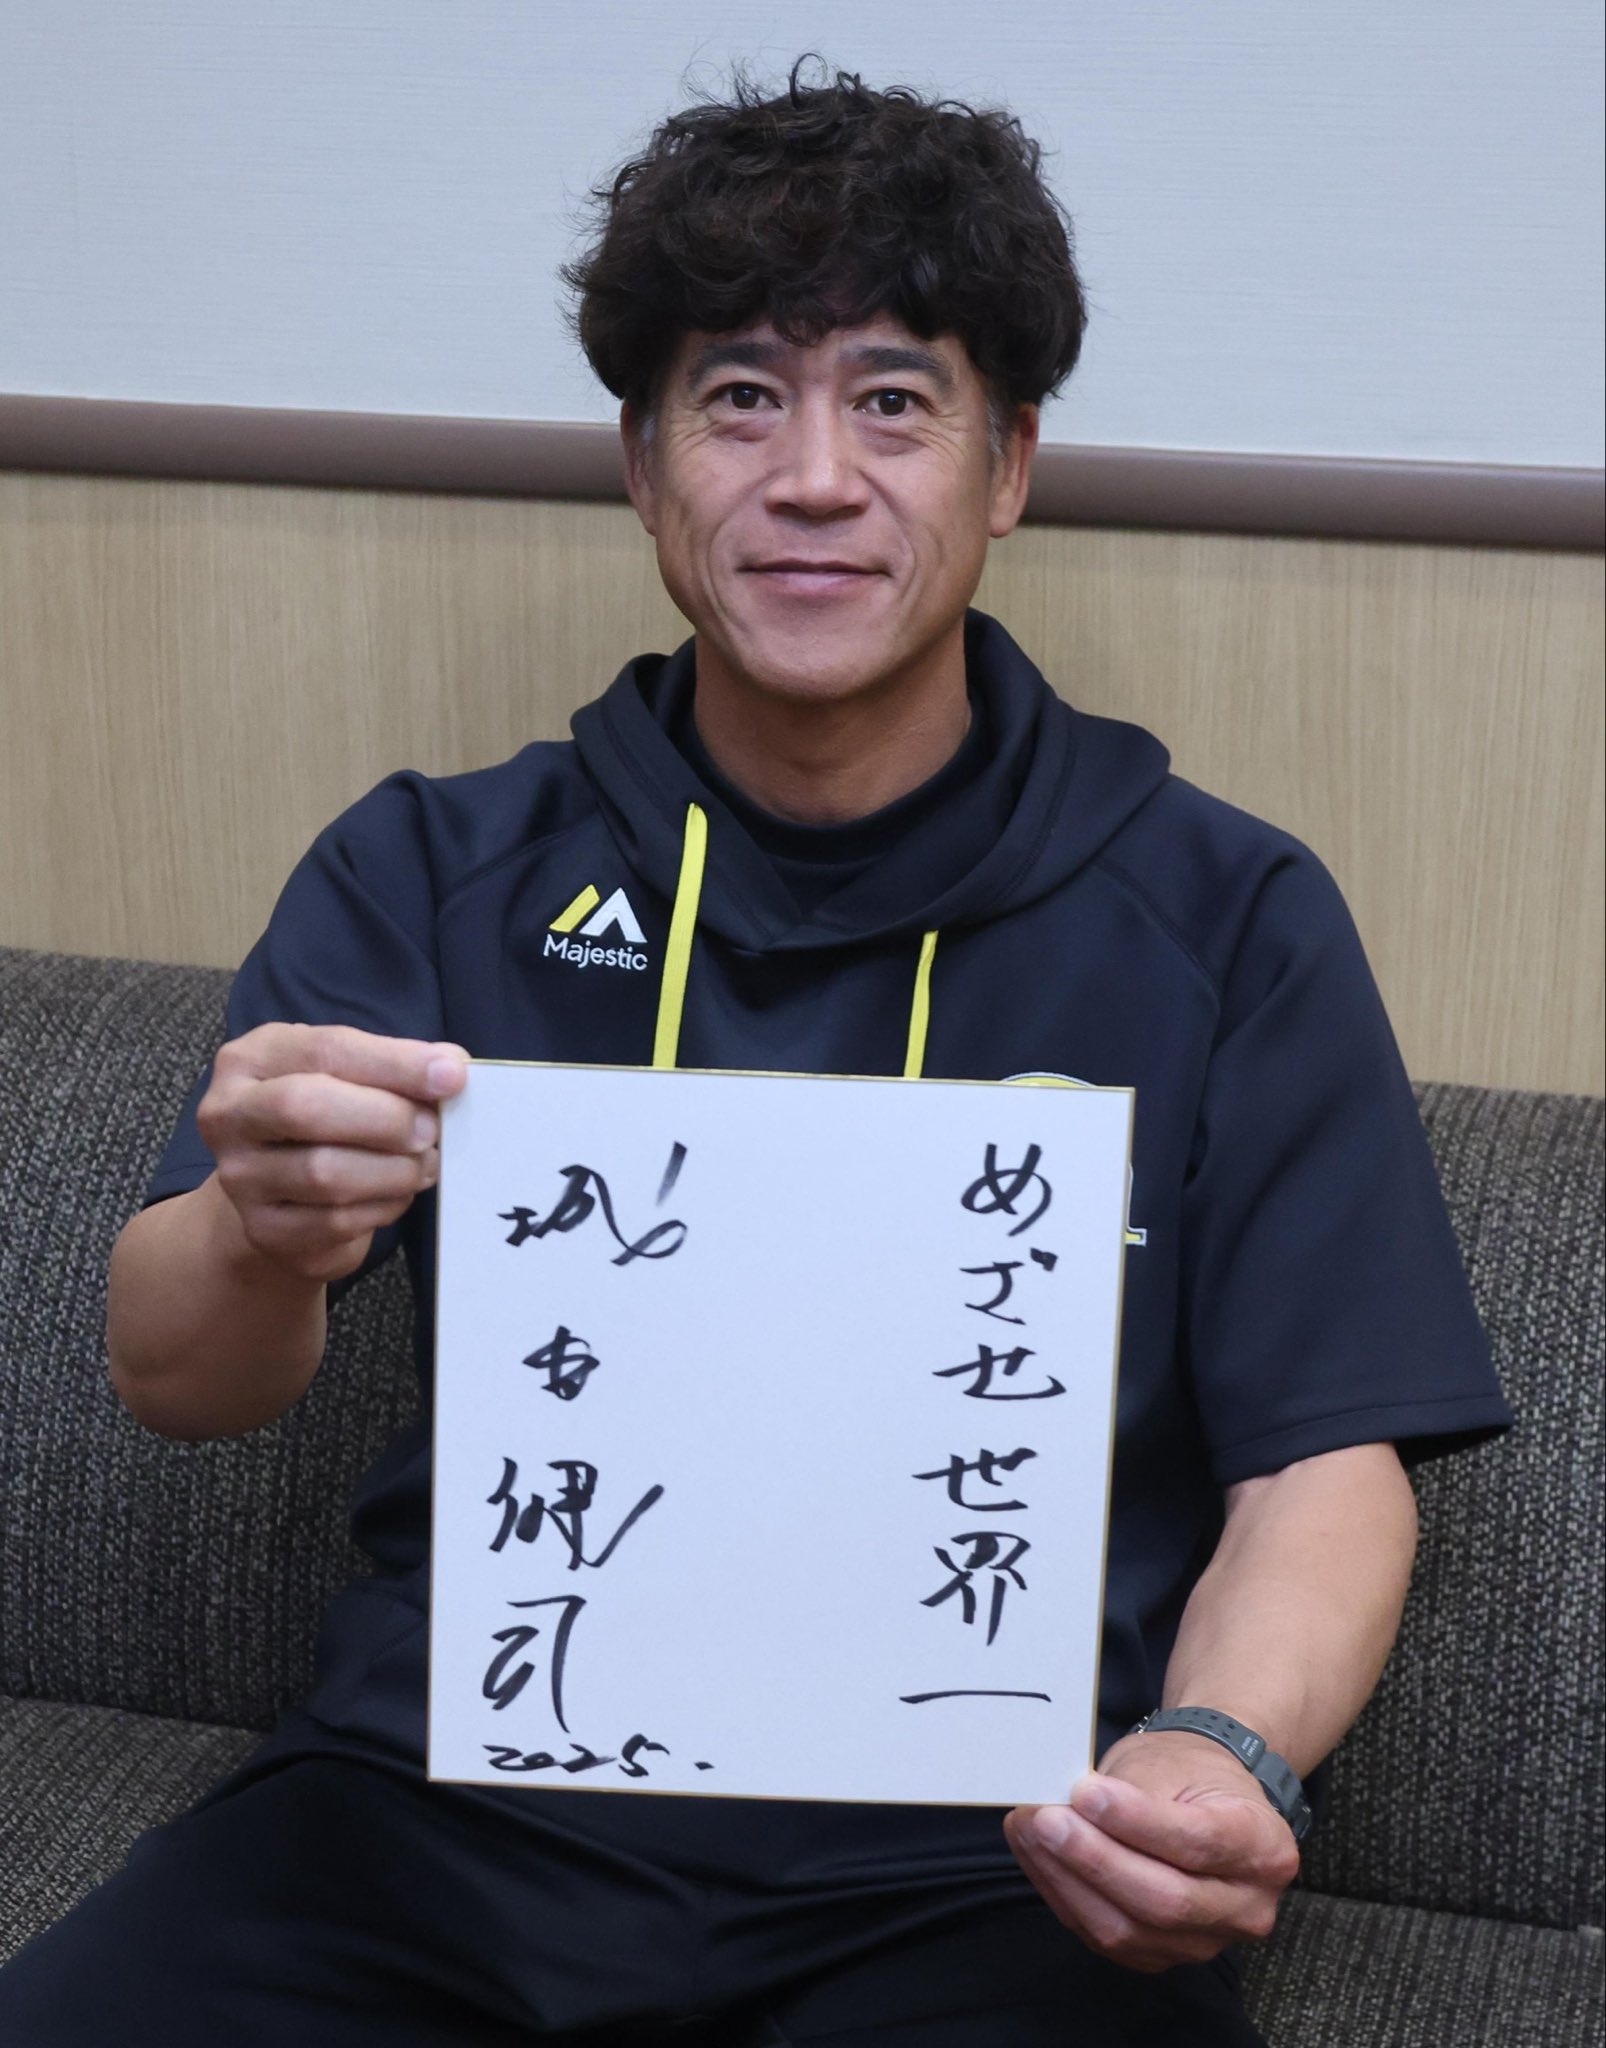 Majestic
めざせ世界一
城島健司
2025.